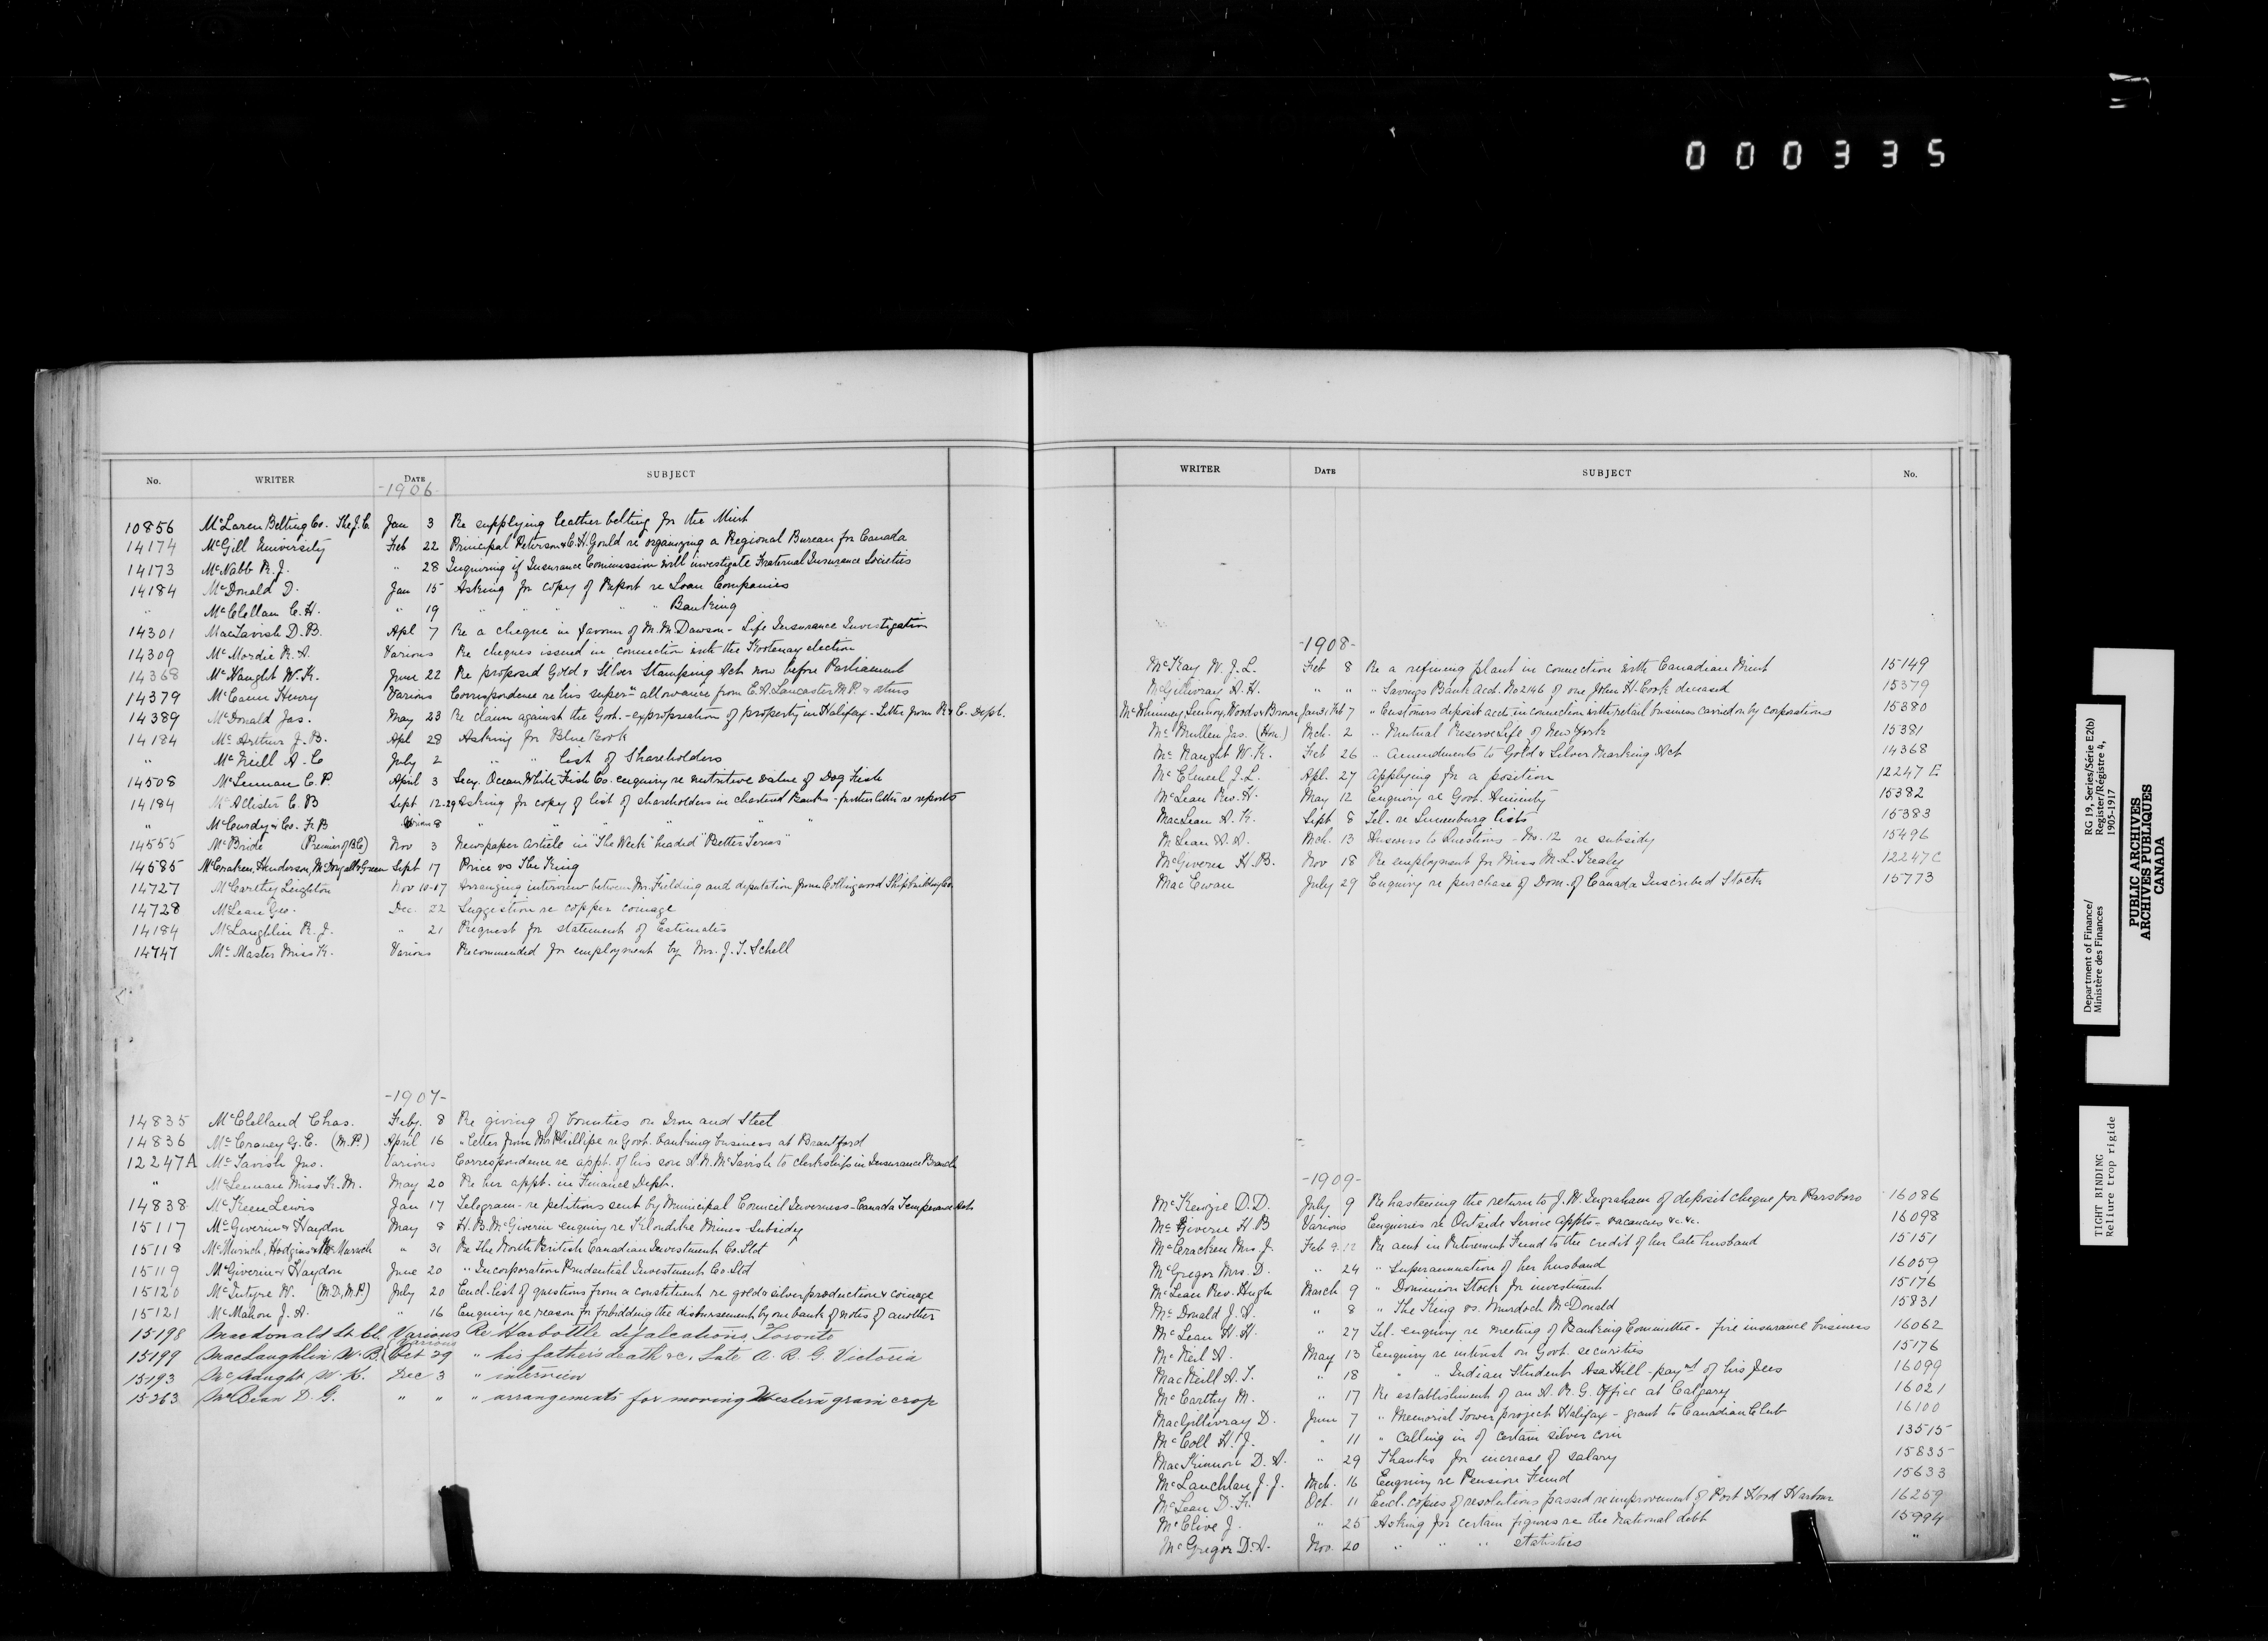 000335
No. WRITER DATE SUBJECT
-1906-
10856 McLaren Belting Co. The J.C. Jan 3 Re supplying leather belting for the Mint
14174 McGill University Feb 22 Principal Peterson & C.H. Gould re organizing a Regional Bureau for Canada
14173 McNabb R.J. " 28 Inquiring if Insurance Commission will investigate Fraternal Insurance Societies
14184 McDonald D. Jan 15 Asking for copy of Report re Loan Companies
" McClellan C.H. " 19 " " " " " Banking
14301 MacTavish D.B. Apl 7 Re a cheque in favour of M.M. Dawson - Life Insurance Investigation
14309 McMordie R.A. Various Re cheques issued in connection with the Kootenay election
14368 McNaught W.K. June 22 Re proposed Gold & Silver Stamping Act now before Parliament
14379 McCann Henry Various Correspondence re his super'n allowance from E.A. Lancaster M.P. & others
14389 McDonald Jas. May 23 Re claim against the Govt. - expropriation of property in Halifax - Letter from R & C. Dept.
14184 McArthur J.B. Apl 28 Asking for Blue Book
" McNeill A.C July 2 " " List of Shareholders
14508 McLennan C.P. April 3 Secy. Ocean White Fish Co. enquiry re nutritive value of Dog Fish
14184 McAllister C.B Sept 12-29 Asking for copy of list of shareholders in chartered Banks - further letter re reports
" McCurdy & Co. F.B 8 " " " " "
14555 McBride (Premier of B.C) Nov 3 Newspaper Article in "The Week" headed "Better Terms"
14585 McCraken, Henderson, McDougall & Green Sept 17 Price vs The King
14727 McCarthy Leighton Nov 10-17 Arranging interview between Mr. Fielding and deputation from Collingwood Shipbuilding Co.
14728 McLean Geo. Dec. 22 Suggestion re copper coinage
14184 McLaughlin R.J. " 21 Request for statement of Estimates
14747 McMaster Miss K. Various Recommended for employment by Mr. J.T. Schell
-1907-
14835 McClelland Chas. Feby. 8 Re giving of bounties on Iron and Steel
14836 McCraney G.E. (M.P.) April 16 " Letter from Mr Phillips re Govt. banking business at Brantford
12247A McTavish Jno. Various Correspondence re appt. of his son A.N. McTavish to clerkship in Insurance Branch
" McLennan Miss K.M. May 20 Re her appt. in Finance Dept.
14838 McKeen Lewis Jan 17 Telegram - re petitions sent by Municipal Council Inverness - Canada Temperance Act
15117 McGiverin & Haydon May 8 H.B. McGiverin enquiry re Klondike Mines - Subsidy
15118 McMurrich, Hodgins & McMurrich " 31 Re The North British Canadian Investment Co. Ltd
15119 McGiverin & Haydon June 20 " Incorporation Prudential Investment Co. Ltd
15120 McIntyre W. (M.D., M.P.) July 20 Encl. list of questions from a constituent re gold & silver production & coinage
15121 McMahon J.A. " 16 Enquiry re reason for forbidding the disbursement by one bank of notes of another
15198 Macdonald Lt. Col. Various Re Harbottle defalcations, Toronto
15199 MacLaughlin W.B. Various Oct 29 " his father's death &c. Late A.R.G. Victoria
15193 McNaught W.K. Dec 3 " interview
15263 McBean D.G. " " " arrangements for moving Western grain crop
WRITER DATE SUBJECT No.
-1908-
McKay W.J.L. Feb 8 Re a refining plant in connection with Canadian Mint 15149
McGillivray A.H. " " " Savings Bank Acct. No 2146 of one John H. Cook deceased 15379
McWhinney, Lennox, Woods & Brown Jan 31 Feb 7 " Customers deposit acct. in connection with retail business carried on by corporations 15380
McMullen Jas. (Hon.) Mch. 2 " Mutual Reserve Life of New York 15381
McNaught W.K. Feb 26 " Amendments to Gold & Silver Marking Act 14368
McElmeel J.L. Apl. 27 Applying for a position 12247 E
McLean Rev. H. May 12 Enquiry re Govt. Annuity 15382
MacLean A.K. Sept 8 Tel. re Lunenburg lists 15383
McLean A.A. Mch. 13 Answers to Questions - No. 12 re subsidy 15496
McGiverin H.B. Nov 18 Re employment for Miss M.L. Trealey 12247C
MacEwan July 29 Enquiry re purchase of Dom. of Canada Inscribed Stock 15773
-1909-
McKenzie D.D. July 9 Re hastening the return to J.W. Ingraham of deposit cheque for Parsboro 16086
McGiverin H.B Various Enquiries re Outside Service Appts - vacancies &c. &c. 16098
McCracken Mrs. J. Feb 9.12 Re acnt in Retirement Fund to the credit of her late husband 15151
McGregor Mrs. D. " 24 " Superannuation of her husband 16059
McLean Rev. Hugh March 9 " Dominion Stock for investment 15176
McDonald J.A. " 8 " The King vs. Murdoch McDonald 15831
McLean H.H. " 27 Tel. enquiry re meeting of Banking Committee - fire insurance business 16062
McNeil A. May 13 Enquiry re interest on Govt. securities 15176
MacNeill A.T. " 18 " " Indian Student Asa Hill - paymt of his fees 16099
McCarthy M. " 17 Re establishment of an A.R.G. Office at Calgary 16021
MacGillivray D. June 7 " Memorial Tower project Halifax - grant to Canadian Club 16100
McColl H.J. " 11 " Calling in of certain silver coin 13515
MacKinnon D.A. " 29 Thanks for increase of salary 15835
McLauchlan J.J. Mch. 16 Enquiry re Pension Fund 15633
McLean D.F. Oct. 11 Encl. copies of resolutions passed re improvement of Port Hood Harbour 16259
McClive J. " 25 Asking for certain figures re the national debt 15994
McGregor D.A. Nov. 20 " " " statistics "
Department of Finance/
Ministère des Finances
RG 19, Series/Série E2(b)
Register/Régistre 4,
1905-1917
PUBLIC ARCHIVES
ARCHIVES PUBLIQUES
CANADA
TIGHT BINDING
Reliure trop rigide